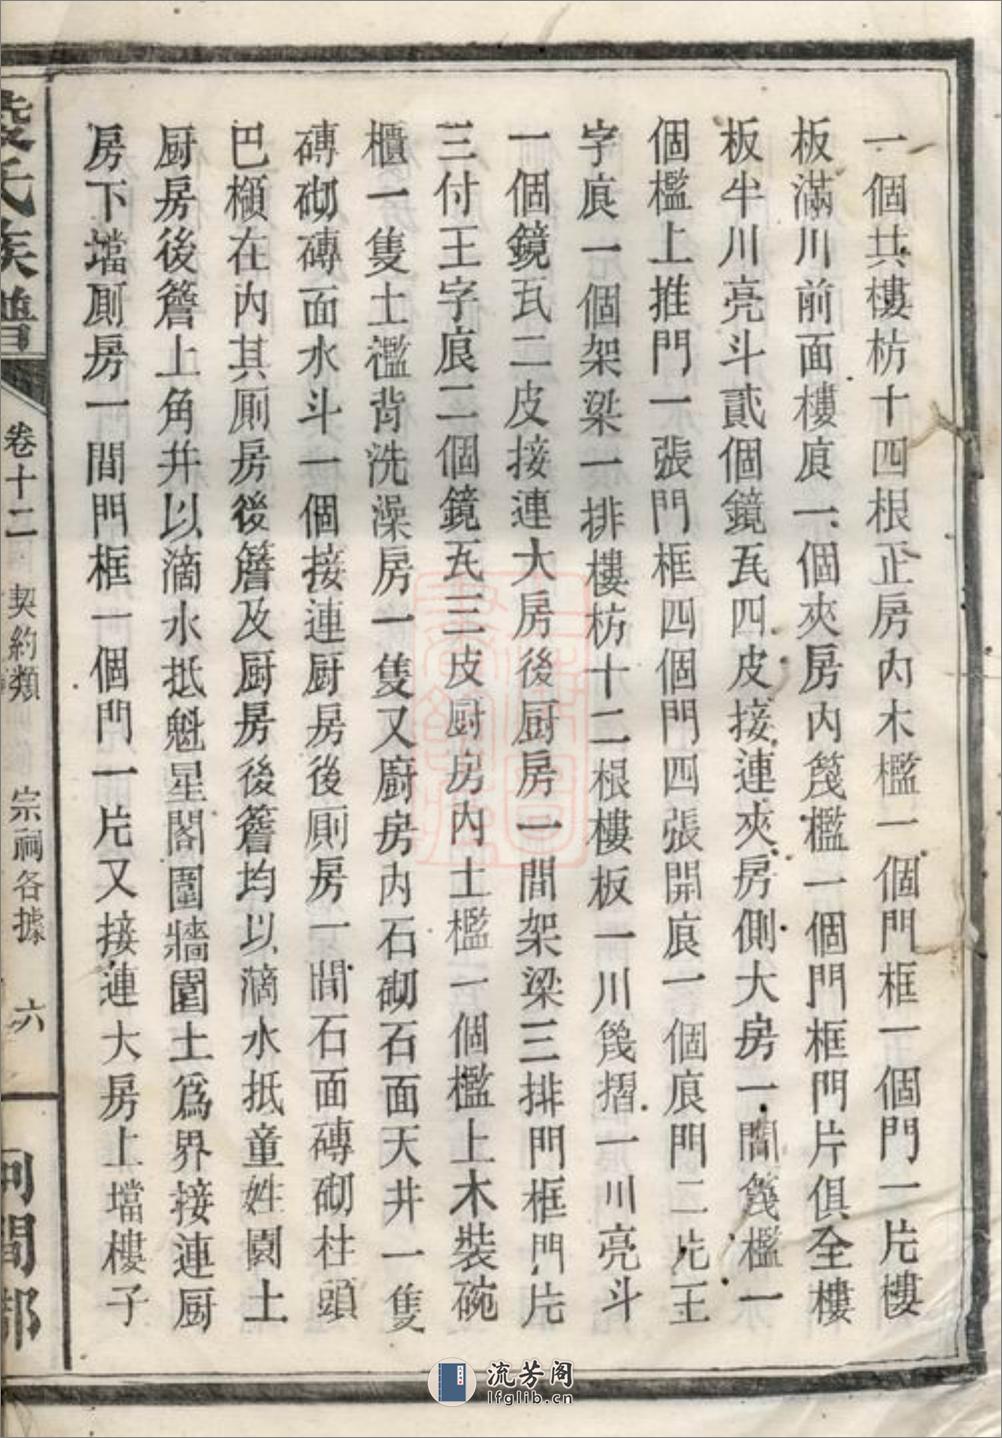 一個共樓枋十四根正房內木檻一個門框一個門一片樓
板滿川前面樓㡳一個夾房內篾檻一個門框門片俱全樓
板半川亮斗貳個鏡瓦四皮接連夾房側大房一間篾檻一
個檻上推門一張門框四個門四張開㡳一個㡳門二片王
字㡳一個架梁一排樓枋十二根樓板一川篾摺一川亮斗
一個鏡瓦二皮接連大房後厨房一間架梁三排門框門片
三付王字㡳二個鏡瓦三皮厨房內土檻一個檻上木裝碗
櫃一隻土禵背洗澡房一隻又廚房內石砌石面天井一隻
磚砌磚面水斗一個接連厨房後厠房一間石面磚砌柱頭
巴櫃在內其厠房後簷及厨房後簷均以滴水抵童姓園土
厨房後簷上角井以滴水抵魁星閣圍牆圍土爲界接連厨
房下壋厠房一間門框一個門一片又接連大房上壋樓子
氏族譜
卷十二 契約類 宗祠各據 六
河間郡
流芳阁
lfglib.cn